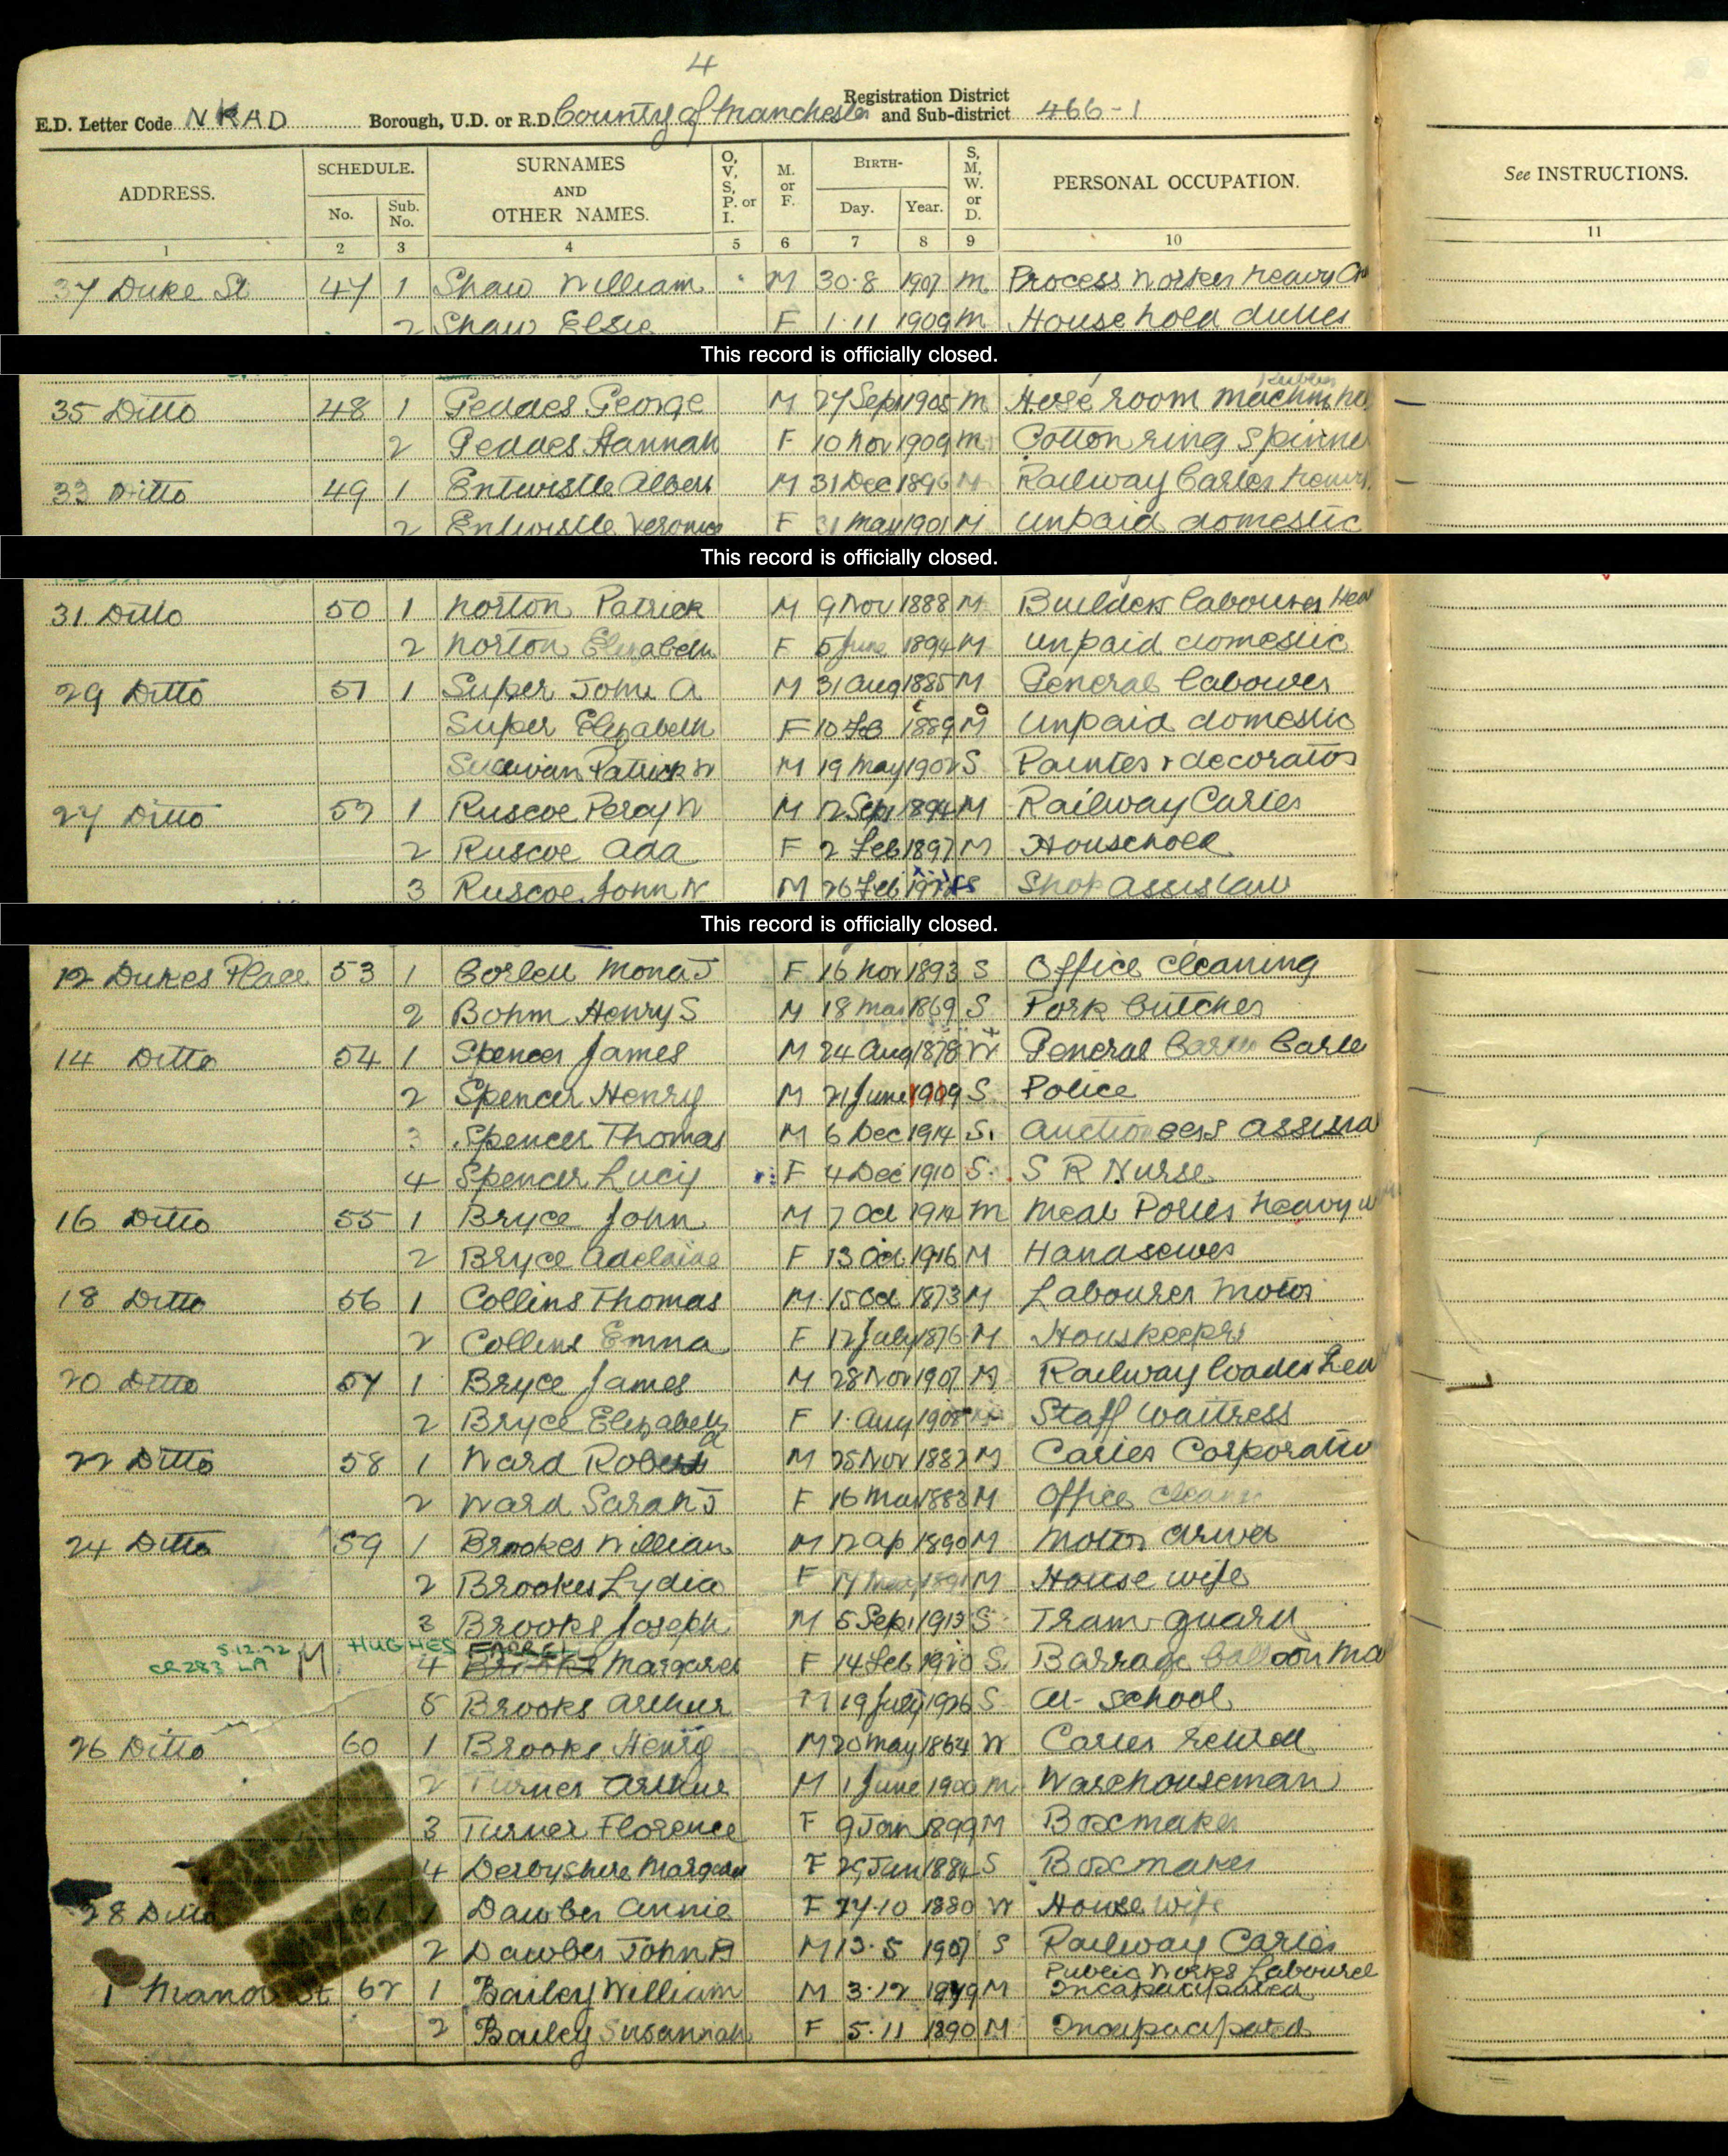 4
E.D. Letter Code NKAD Borough, U.D. or R.D. County of Manchester Registration District and Sub-district 466-1
ADDRESS. SCHEDULE. No. Sub. No. SURNAMES AND OTHER NAMES. O, V, S, P. or I. M. or F. BIRTH- Day. Year. S, M, W. or D. PERSONAL OCCUPATION. See INSTRUCTIONS.
1 2 3 4 5 6 7 8 9 10 11
37 Duke St 47 1 Shaw William M 30·8 1907 M Process Worker heavy
2 Shaw Elsie F 1·11 1909 M Household duties
This record is officially closed.
35 Ditto 48 1 Geddes George M 27 Sept 1905 M Hose room
2 Geddes Hannah F 10 Nov 1909 M Cotton ring Spinne
33 Ditto 49 1 Entwistle Albert M 31 Dec 1896 M Railway Carter heavy
2 Entwistle Veronica F 31 May 1901 M Unpaid domestic
This record is officially closed.
31 Ditto 50 1 Norton Patrick M 9 Nov 1888 M Builders labourer Hea
2 Norton Elizabeth F 5 June 1894 M Unpaid domestic
29 Ditto 51 1 Super John A M 31 Aug 1885 M General labourer
Super Elizabeth F 10 Feb 1889 M Unpaid domestic
Sullivan Patrick W M 19 May 1902 S Painter & decorator
27 Ditto 52 1 Ruscoe Percy W M 12 Sept 1894 M Railway Carter
2 Ruscoe Ada F 2 Feb 1897 M Household
3 Ruscoe John W M 26 Feb S Shop assistant
This record is officially closed.
12 Dukes Place 53 1 Corlett Mona J F 16 Nov 1893 S Office cleaning
2 Bohm Henry S M 18 Mar 1869 S Pork butcher
14 Ditto 54 1 Spencer James M 24 Aug 1878 W General Carter
2 Spencer Henry M 21 June 1909 S Police
3 Spencer Thomas M 6 Dec 1914 S. Auctioneers assista
4 Spencer Lucy F 4 Dec 1910 S. S R Nurse
16 Ditto 55 1 Bryce John M 7 Oct 1914 M Meat Porter heavy w
2 Bryce Adelaide F 13 Oct 1916 M Handsewer
18 Ditto 56 1 Collins Thomas M 15 Oct 1873 M Labourer Motor
2 Collins Emma F 12 July 1876 M Houskeeper
20 Ditto 57 1 Bryce James M 28 Nov 1907 M Railway loader hea
2 Bryce Elizabeth F 1 Aug 1908 Staff Waitress
22 Ditto 58 1 Ward Robert M 25 Nov 1882 M Carter Corporatio
2 Ward Sarah J F 16 Mar 1883 M Office cleaner
24 Ditto 59 1 Brookes William M 12 Ap 1890 M Motor driver
2 Brookes Lydia F 14 May 1891 M House wife
3 Brooks Joseph M 5 Sept 1913 S Tram guard
5.12.72 CR283 LA M HUGHES FARRELL
4 Brooks Margaret F 14 Feb 1920 S. Barrage balloon ma
5 Brooks Arthur M 19 July 1926 S At school
26 Ditto 60 1 Brooks Henry M 20 May 1864 W Carter retired
2 Turner Arthur M 1 June 1900 M Warehouseman
3 Turner Florence F 9 Jan 1899 M Boxmaker
4 Derbyshire Margaret F 29 Jun 1884 S Boxmaker
28 Ditto 61 1 Dawber Annie F 27·10 1880 W House wife
2 Dawber John M 13·5 1907 S Railway Carter
Public Works Labourer
1 Manor St 62 1 Bailey William M 3·12 M Incapacipated
2 Bailey Susannah F 5·11 1890 M Incapacipated